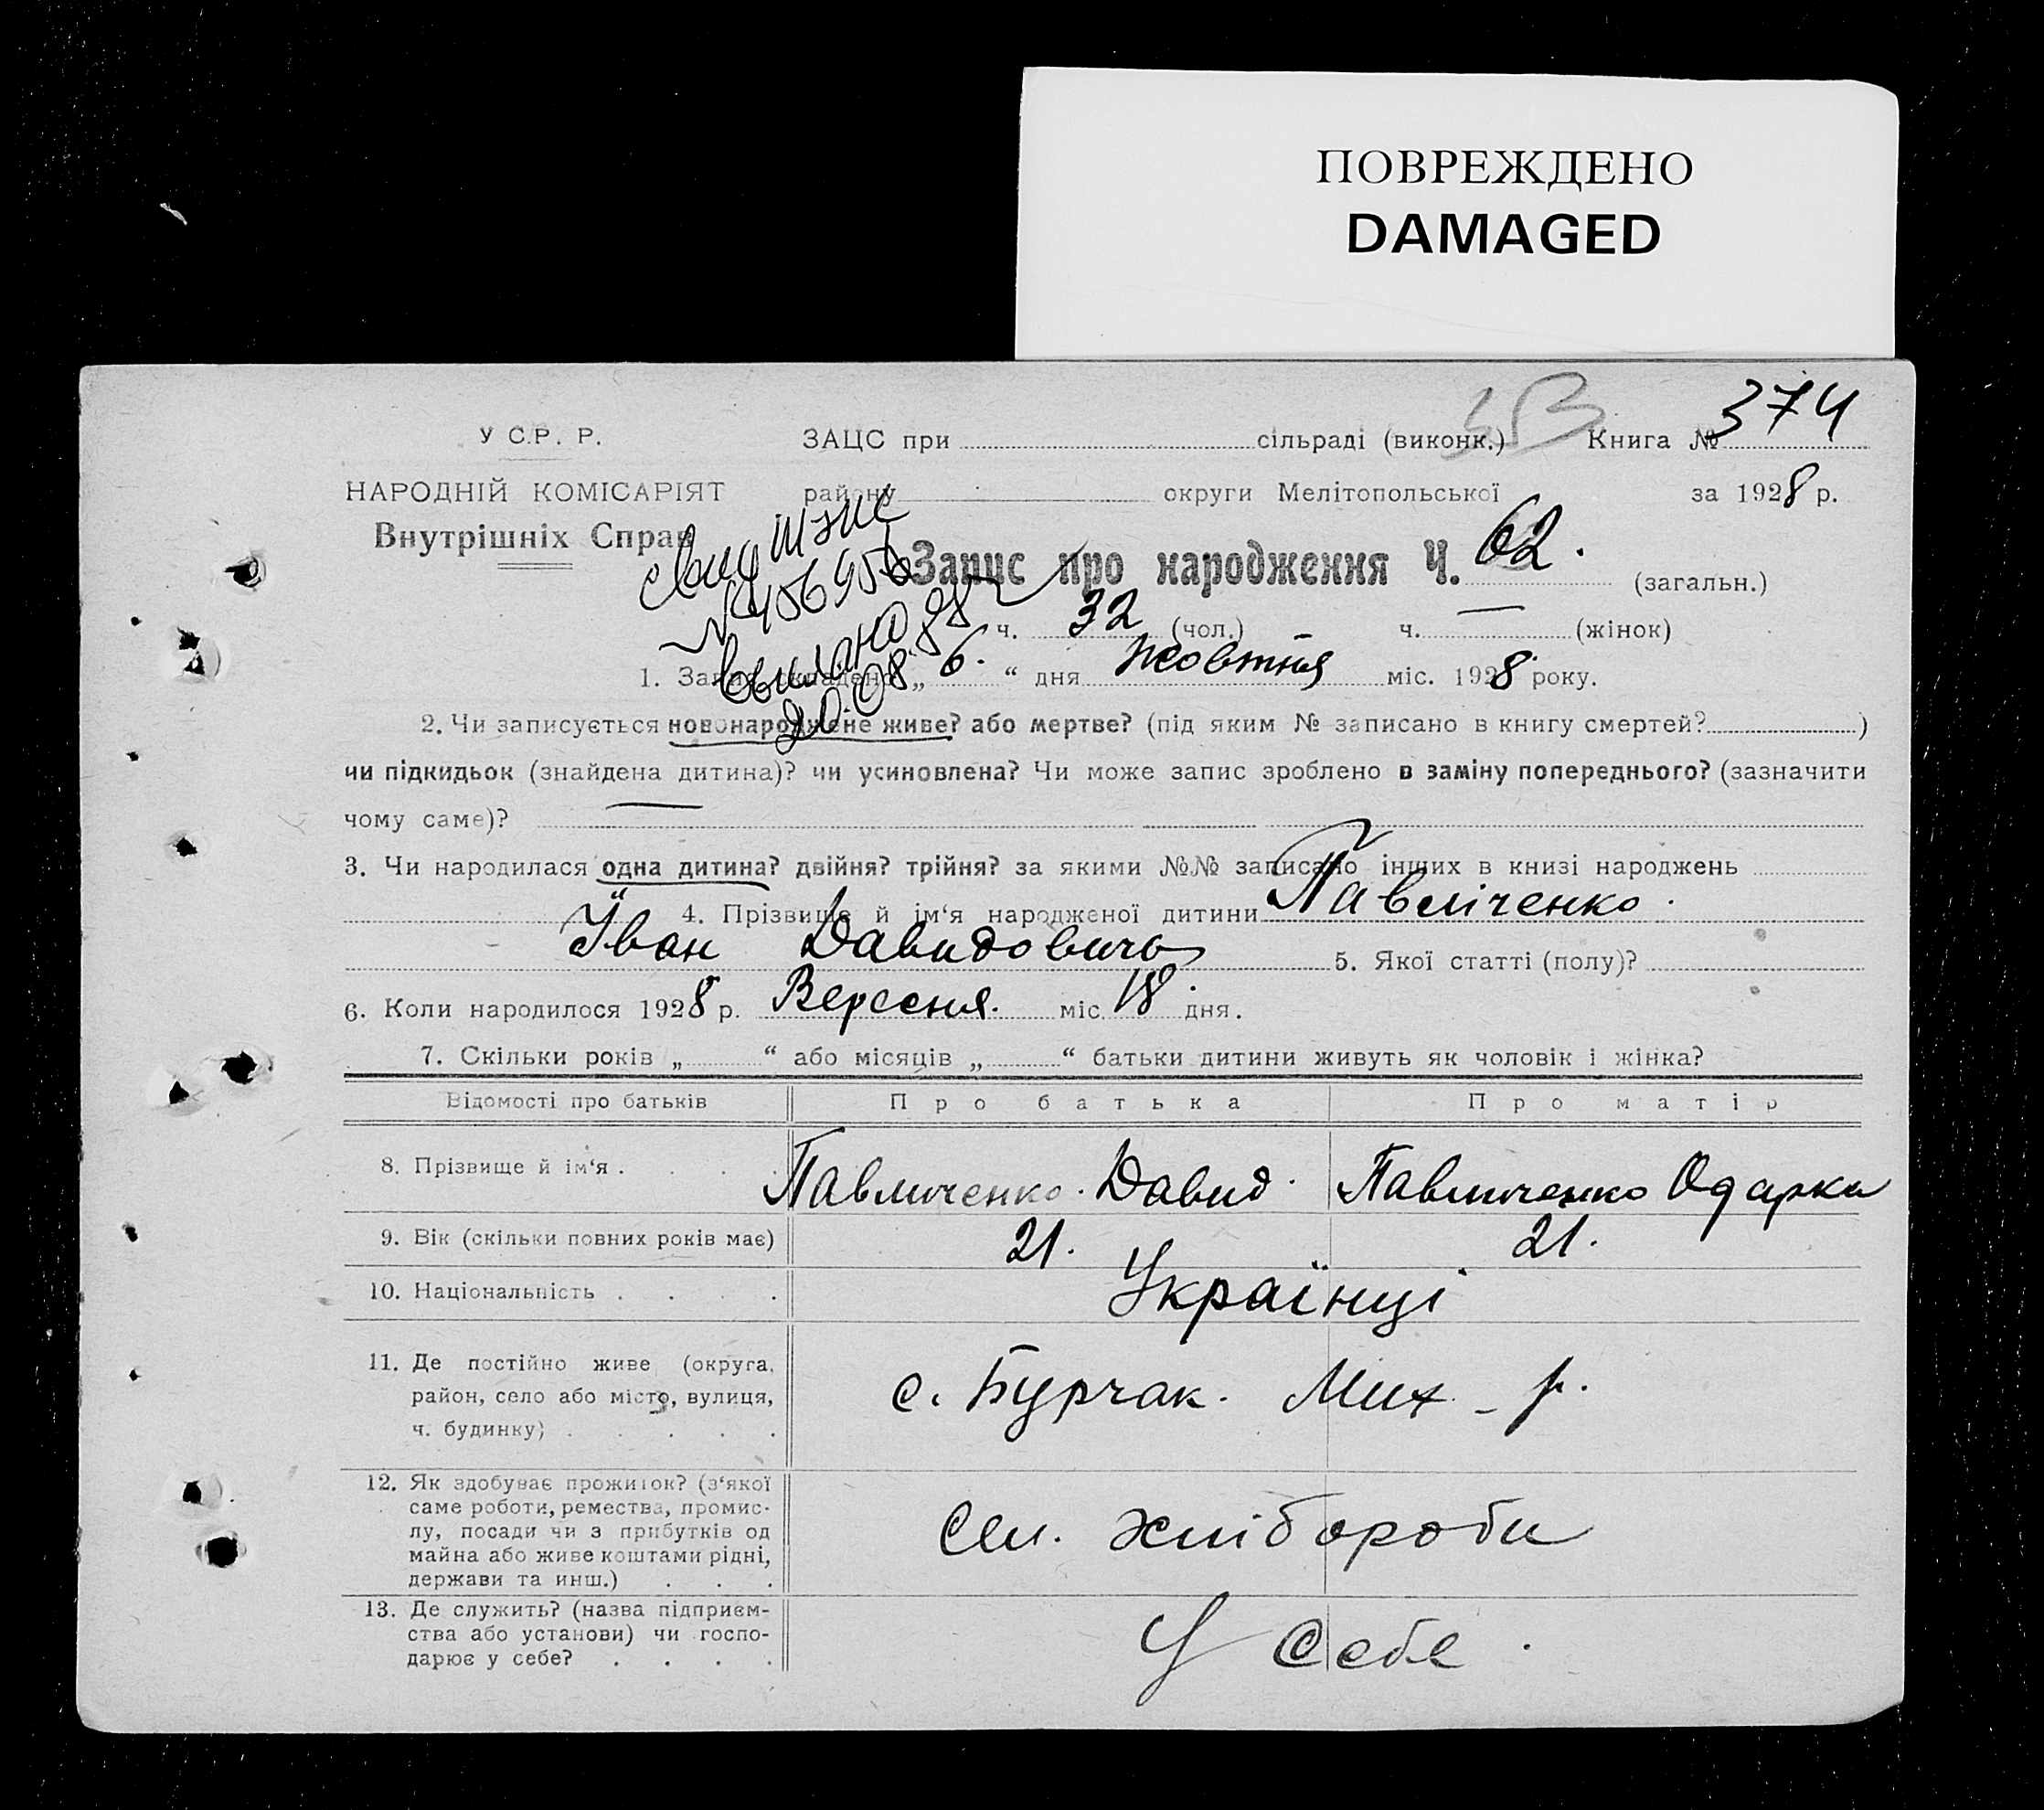 ПОВРЕЖДЕНО
DAMAGED
У С.Р. Р.
ЗАЦС при сільраді (виконк.) Книга № 374
НАРОДНІЙ КОМІСАРІЯТ
району округи Мелітопольської за 1928 р.
Внутрішніх Справ
Запис про народження Ч. 62. (загальн.)
ч. 32 (чол.) ч. — (жінок)
выслано 20.08.88
1. Запис складено „ 6. “ дня жовтня міс. 1928 року.
2. Чи записується новонароджене живе? або мертве? (під яким № записано в книгу смертей? )
чи підкидьок (знайдена дитина)? чи усиновлена? Чи може запис зроблено в заміну попереднього? (зазначити
чому саме)? —
3. Чи народилася одна дитина? двійня? трійня? за якими №№ записано інших в книзі народжень
4. Прізвище й ім‘я народженої дитини Павліченко.
Іван Давидовичь 5. Якої статті (полу)?
6. Коли народилося 1928 р. Вересня. міс. 18. дня.
7. Скільки років „ “ або місяців „ “ батьки дитини живуть як чоловік і жінка?
Відомості про батьків Про батька Про матір
8. Прізвище й ім‘я . . . . Павличенко. Давид. Павличенко Одарка
9. Вік (скільки повних років має) 21. 21.
10. Національність . . . . Українці
11. Де постійно живе (округа,
район, село або місто, вулиця,
ч. будинку) . . . . .
с. Бурчак. Мих - р.
12. Як здобуває прожиток? (з‘якої
саме роботи, ремества, промис-
лу, посади чи з прибутків од
майна або живе коштами рідні,
держави та инш.) . . .
Сел. хлібороби
13. Де служить? (назва підприєм-
ства або установи) чи госпо-
дарює у себе? . . . .
У себе.